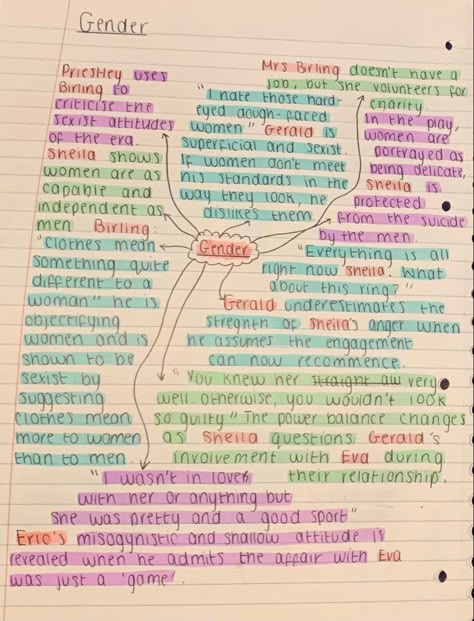 Gender
Priestley uses
Birling to
criticise the
sexist attitudes
of the era.
Sheila shows
women are as
capable and
independent as
men Birling:
"Clothes mean
something quite
different to a
woman" he is
objectifying
women and is
shown to be
sexist by
suggesting
clothes mean
more to women
than to men
"I hate those hard-
eyed dough-faced
women" Gerald is
superficial and sexist.
If women don't meet
his standards in the
way they look he
dislikes them
Mrs Birling doesn't have a
job, but she volunteers for
charity.
In the play,
women are
portrayed as
being delicate,
Sheila is
protected
from the suicide
by the men.
Gender
"Everything is all
right now Sheila. What
about this ring?"
Gerald underestimates the
stregnth of Sheila's anger when
he assumes the engagement
can now recommence.
"You knew her straight aw very
well otherwise, you wouldn't look
so guilty" The power balance changes
as Sheila questions Gerald's
involvement with Eva during
their relationship.
"I wasn't in love
with her or anything but
she was pretty and a good sport"
Eric's misogynistic and shallow attitude is
revealed when he admits the affair with Eva
was just a 'game'.